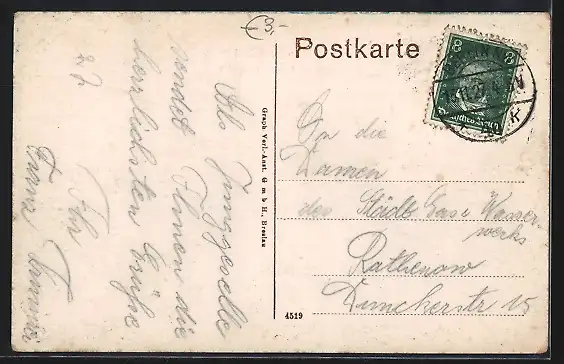 (3.-
Postkarte
8 8
Deutsches Reich
An die
Damen
des Städt. Gas & Wasser-
werks
Rathenow
Dunckerstr 15
Als Junggeselle
sendet Ihnen die
herzlichsten Grüße
z. Z.
Ihr
Graph. Verl.-Anst. G. m. b. H., Breslau
4519